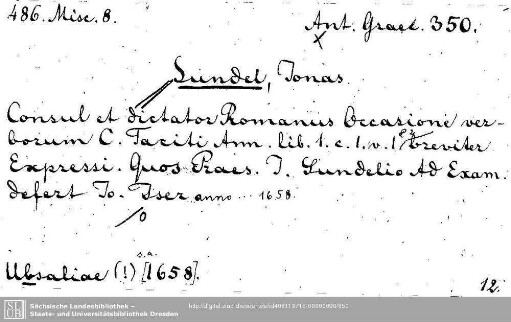 486. Misc. 8.
Ant. Graec. 350.
x
Sundel, Jonas.
Consul et dictator Romanus Occasione ver-
borum C. Taciti Ann. lib. 1. c. 1. v. 1 et 3 breviter
Expressi. Quos Praes. J. Sundelio Ad Exam.
defert Jo. Iser anno ... 1658.
s.a.
Ubsaliae (!) [1658].
12.
Sächsische Landesbibliothek –
Staats- und Universitätsbibliothek Dresden